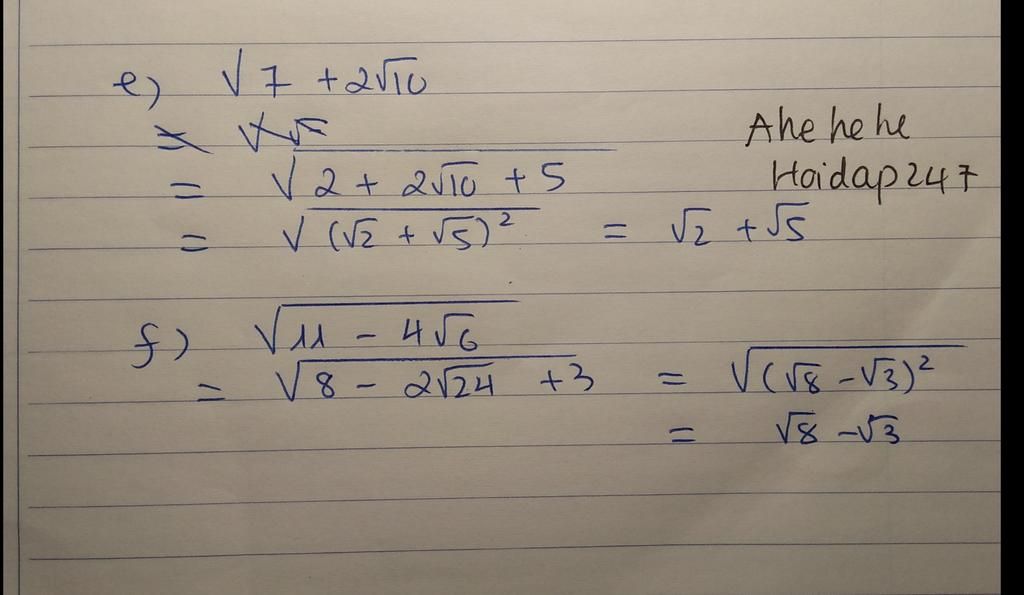 e) √7 + 2√10
= √√
= √2 + 2√10 + 5
= √(√2 + √5)² = √2 + √5
Ahehehe
Hoidap247
f) √11 - 4√6
= √8 - 2√24 + 3 = √(√8 - √3)²
= √8 - √3